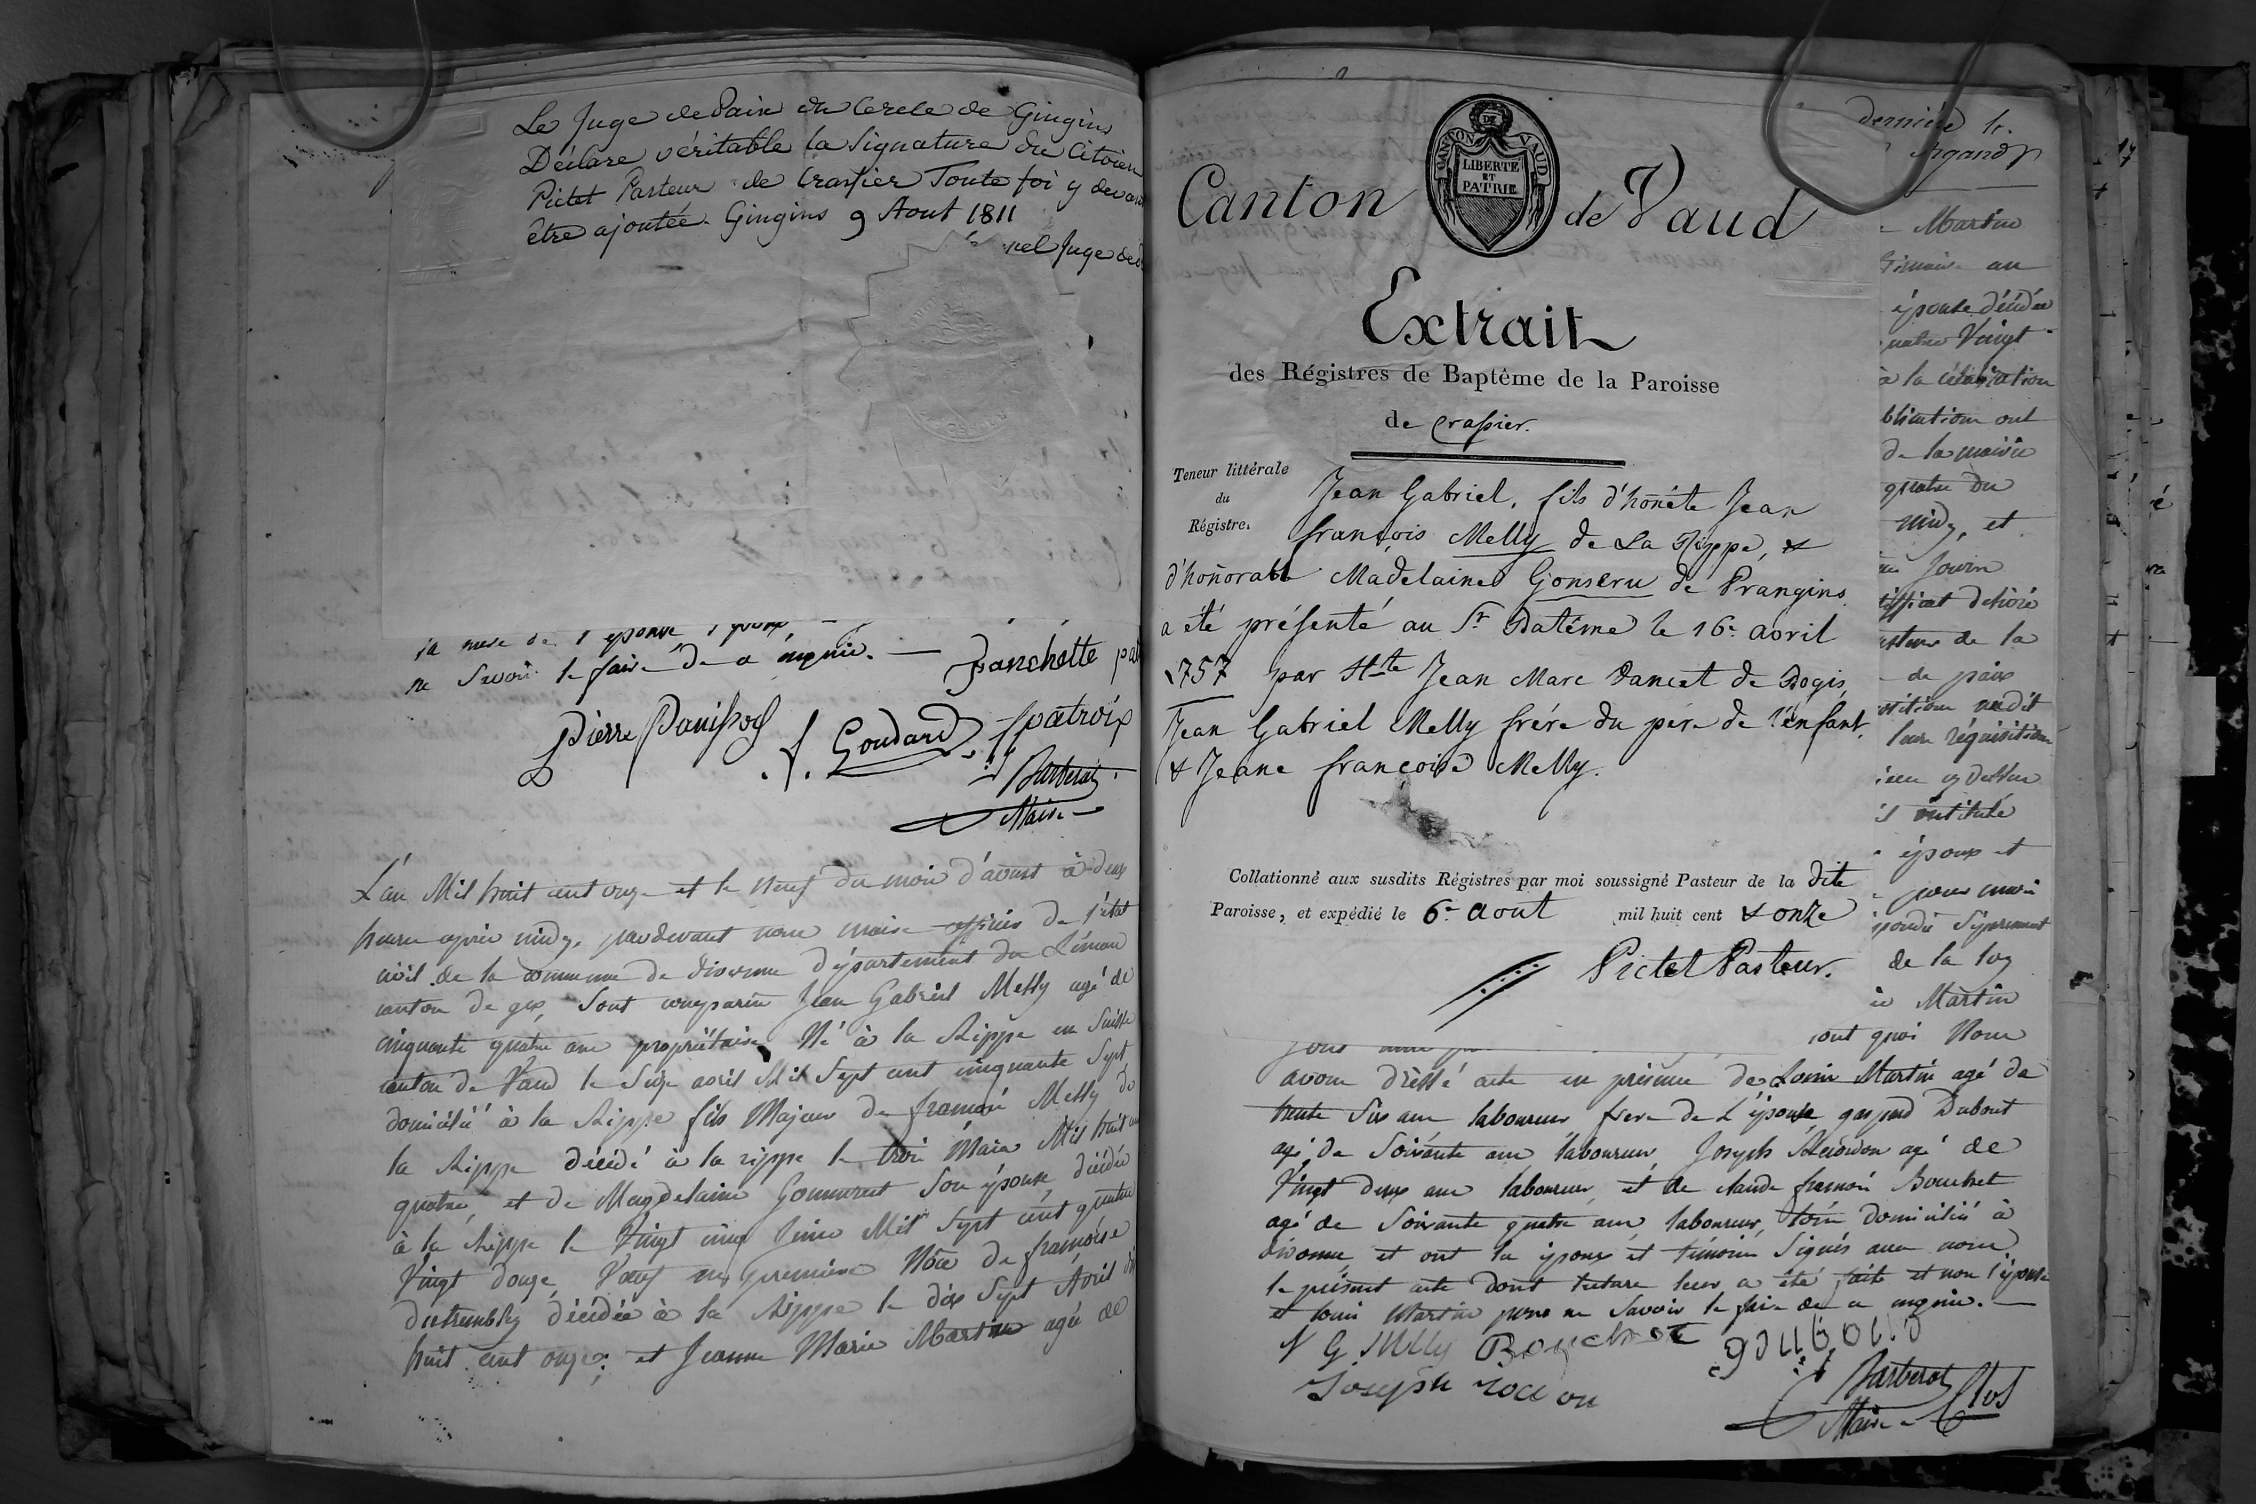 Le Juge de Paix du Cercle de Gingins
Déclare véritable la Signature du Citoien
Pictet Pasteur de Crassier Toute foi y devant
être ajoutée. Gingins 9 Aout 1811
Juge de
ne Savoir le faire de a enquis. Fanchette
Pierre Panissod J. Goudard patroix
Barberat
Maire
L'an Mil huit cent onze et le Neuf du mois d'aoust à deux
heures après midy, pardevant nous maire officier de l'état
civil de la commune de divonne département du Léman
canton de gex, Sont comparus Jean Gabriel Melly agé de
cinquante quatre ans propriétaire Né à la Rippe en Suisse
canton de Vaud le Seize avril Mil Sept cent cinquante Sept
domicilié à la Rippe fils Majeur de francois Melly de
la Rippe décédé à la rippe le trois Mars Mil huit cent
quatre, et de Magdelaine Gonnerut Son épouse décédée
à la Rippe le Vingt cinq Juin Mil Sept cent quatre
Vingt douze, Veuf en première Nôce de francoise
décédée à la Rippe le dix Sept Avril dix
huit cent onze; et Jeanne Marie Martin agée de
CANTON DE VAUD
LIBERTE
ET
PATRIE
Canton de Vaud
Extrait
des Régistres de Baptême de la Paroisse
de Crassier.
Teneur littérale
du
Régistre.
Jean Gabriel, fils d'honête Jean
françois Melly de La Rippe, &
d'honorable Madelaine Gonseru de Prangins
a été présenté au St Batême le 16e avril
1757 par Hte Jean Marc Dancet de Bogis,
Jean Gabriel Melly frére du pére de l'enfant,
& Jeane francoise Melly.
Collationné aux susdits Régistres par moi soussigné Pasteur de la dite
Paroisse, et expédié le 6e aout mil huit cent & onze
Pictet Pasteur.
dernière
Martin
au
épouse décédée
Vingt
à la célébration
ont
de la mairie
quatre du
midy, et
de la
de paix
leur réquisition
intitulé
époux et
Séparément
de la loy
Martin
quoi Nous
avons dressé acte en présence de Louis Martin agé de
trente Six ans laboureur frere de L'épouse gaspard Dubout
agé de Soixante ans laboureur, Joseph Recordon agé de
Vingt deux ans laboureur et de claude francois Bouchet
agé de Soixante quatre ans, laboureur, tous domiciliés à
divonne, et ont les époux et témoins Signés avec nous
le présent acte dont lecture leur a été faite et non l'épouse
et Louis Martin pour ne Savoir le faire de ce enquis.
J G Melly Bouchet
Joseph
Barberat
Maire